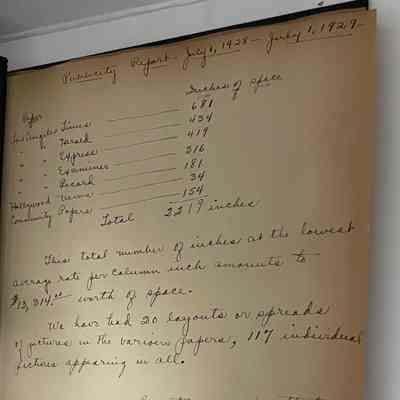 Publicity Report - July 1, 1928 - July 1, 1929
Paper Inches of space
Los Angeles Times 681
" " Herald 434
" " Express 419
" " Examiner 316
" " Record 181
Hollywood News 34
Community Papers 154
Total 2219 inches
This total number of inches at the lowest
average rate per column inch amounts to
$13,314.00 worth of space.
We have had 20 layouts or spreads
of pictures in the various papers, 117 individual
pictures appearing in all.